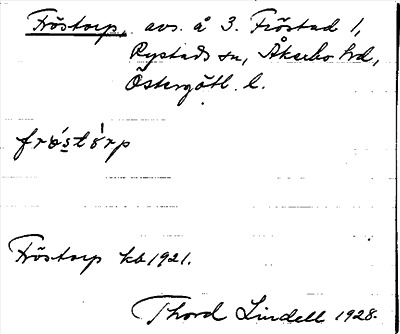 Fröstorp, avs. å 3. Fröstad 1,
Rystads sn, Åkerbo hd,
Östergötl. l.
fröstórp
Fröstorp kb 1921.
Thord Lindell 1928.